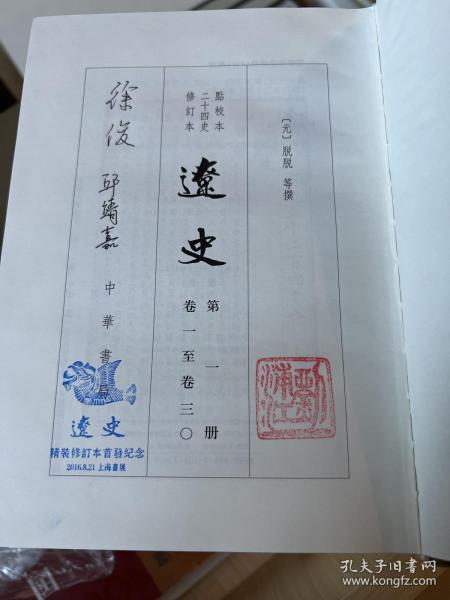 〔元〕脱脱 等撰
點校本
二十四史
修訂本
遼史
第一册
卷一至卷三〇
徐俊
邱靖嘉
中華書局
遼史
精裝修訂本首發紀念
2016.8.21 上海書展
劉浦江
孔夫子旧书网
www.kongfz.com